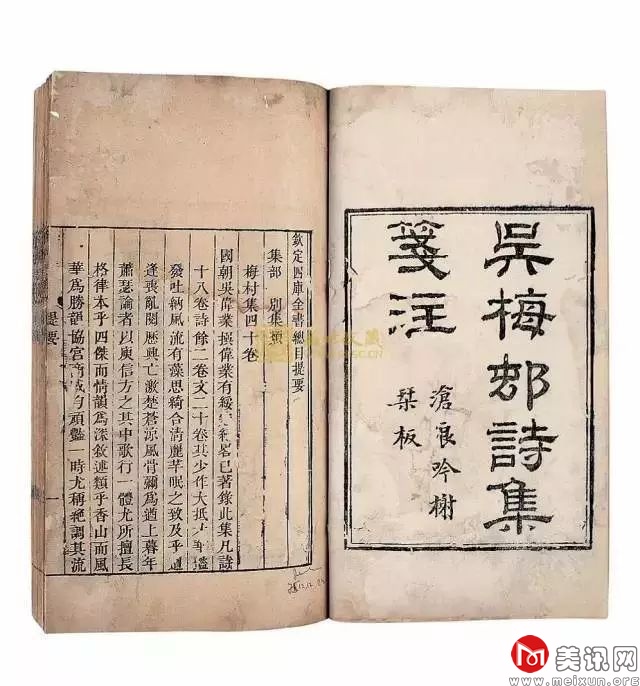 吳梅邨詩集
箋注
滄浪吟榭
栞板
欽定四庫全書總目提要
集部 別集類
梅村集四十卷
國朝吳偉業撰偉業有綏寇紀畧已著錄此集凡詩
十八卷詩餘二卷文二十卷其少作大抵才華豔
發吐納風流有藻思綺合清麗芊眠之致及乎遭
逢喪亂閱歷興亡激楚蒼涼風骨彌爲遒上暮年
蕭瑟論者以庾信方之其中歌行一體尤所擅長
格律本乎四傑而情韻爲深敘述類乎香山而風
華爲勝韻協宮商感均頑豔一時尤稱絕調其流
提要
一
美讯网
www.meixun.org